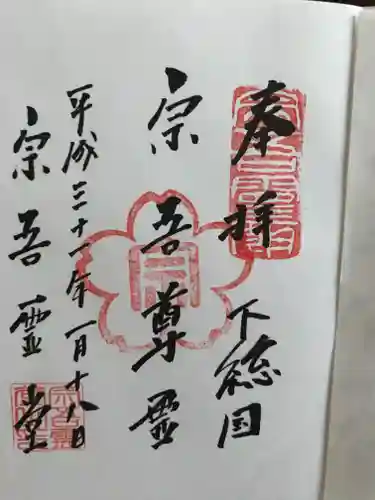 奉拝
下総国
宗吾尊霊
平成三十一年一月十八日
宗吾霊堂